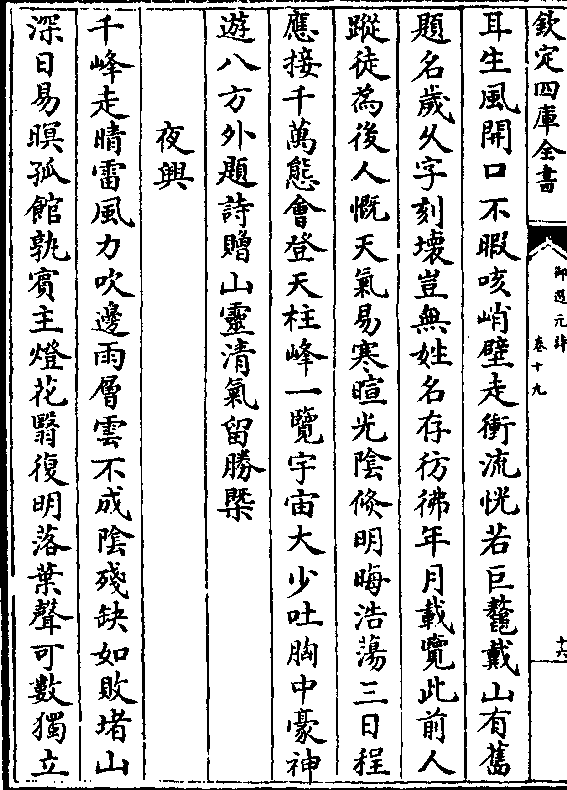 欽定四庫全書
御選元詩
卷十九
十六
耳生風開口不暇咳峭壁走衝流恍若巨鼇戴山有舊
題名歲久字刻壊豈無姓名存彷彿年月載覽此前人
蹤徒為後人慨天氣易寒暄光陰倐明晦浩蕩三日程
應接千萬態會登天柱峰一覽宇宙大少吐胸中豪神
遊八方外題詩贈山靈清氣留勝槩
夜興
千峰走晴雷風力吹邊雨層雲不成陰殘缺如敗堵山
深日易暝孤館孰賓主燈花翳復明落葉聲可數獨立